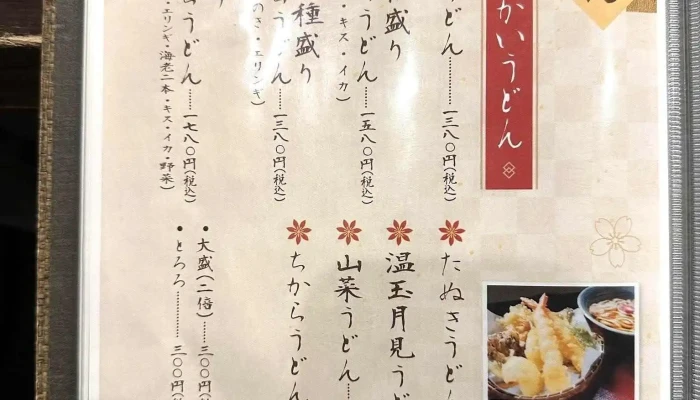 かいうどん
どん……一三八〇円(税込)
盛り
うどん……一五八〇円(税込)
・キス・イカ)
種盛り
うどん……一三八〇円(税込)
のき・エリンギ)
うどん……一七八〇円(税込)
・エリンギ・海老二本・キス・イカ・野菜)
たぬきうどん
温玉月見うど
山菜うどん……
ちからうどん
・大盛(二倍)……三〇〇円(税
・とろろ……三〇〇円(税